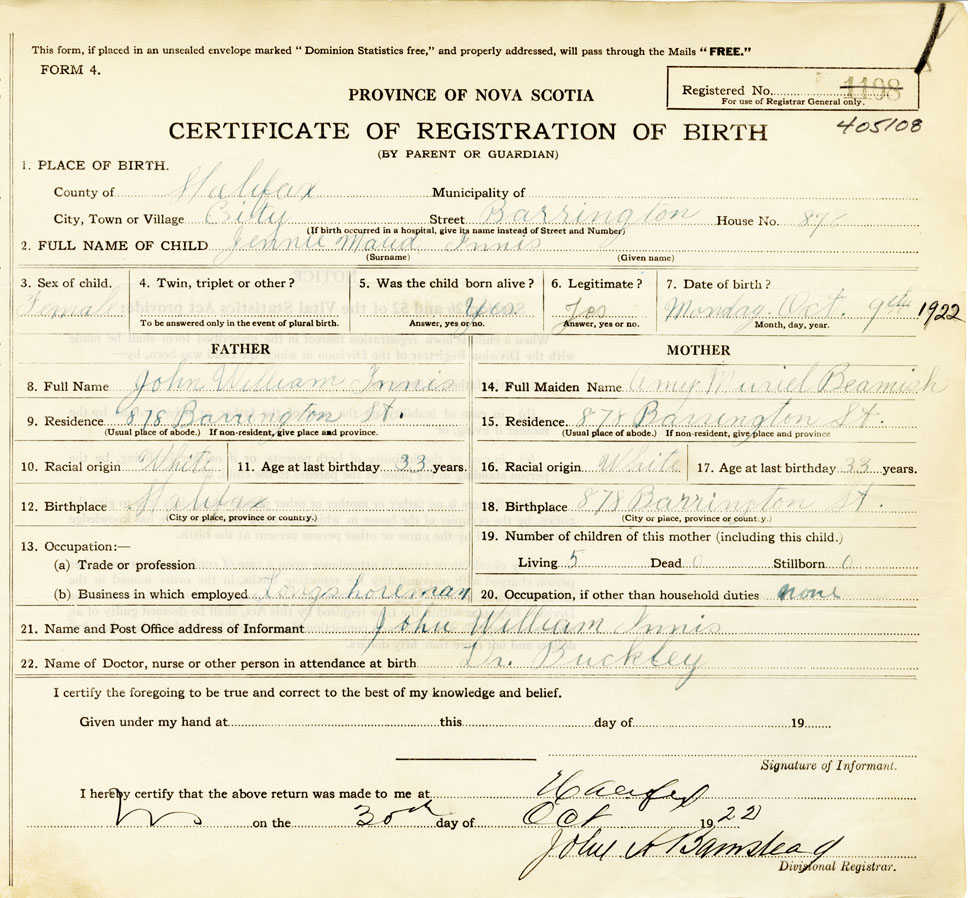 This form, if placed in an unsealed envelope marked "Dominion Statistics free," and properly addressed, will pass through the Mails "FREE."
FORM 4.
Registered No. 1198
For use of Registrar General only.
405108
PROVINCE OF NOVA SCOTIA
CERTIFICATE OF REGISTRATION OF BIRTH
(BY PARENT OR GUARDIAN)
1. PLACE OF BIRTH.
County of Halifax Municipality of
City, Town or Village City Street Barrington House No. 878
(If birth occurred in a hospital, give its name instead of Street and Number)
2. FULL NAME OF CHILD Jennie Maud Innis
(Surname) (Given name)
3. Sex of child. 4. Twin, triplet or other? 5. Was the child born alive? 6. Legitimate? 7. Date of birth?
Female Yes. Yes Monday. Oct. 9th 1922
To be answered only in the event of plural birth. Answer, yes or no. Answer, yes or no. Month, day, year.
FATHER MOTHER
8. Full Name John William Innis 14. Full Maiden Name Amy Muriel Beamish
9. Residence 878 Barrington St. 15. Residence. 878 Barrington St.
(Usual place of abode.) If non-resident, give place and province. (Usual place of abode.) If non-resident, give place and province
10. Racial origin White 11. Age at last birthday 33 years. 16. Racial origin White 17. Age at last birthday 33 years.
12. Birthplace Halifax 18. Birthplace 878 Barrington St.
(City or place, province or country.) (City or place, province or county.)
13. Occupation:— 19. Number of children of this mother (including this child.)
(a) Trade or profession Living 5 Dead 0 Stillborn 0
(b) Business in which employed Longshoreman 20. Occupation, if other than household duties none
21. Name and Post Office address of Informant John William Innis
22. Name of Doctor, nurse or other person in attendance at birth Dr. Buckley
I certify the foregoing to be true and correct to the best of my knowledge and belief.
Given under my hand at this day of 19
Signature of Informant.
I hereby certify that the above return was made to me at Halifax
on the 30th day of Oct 1922
John A Barnstead
Divisional Registrar.